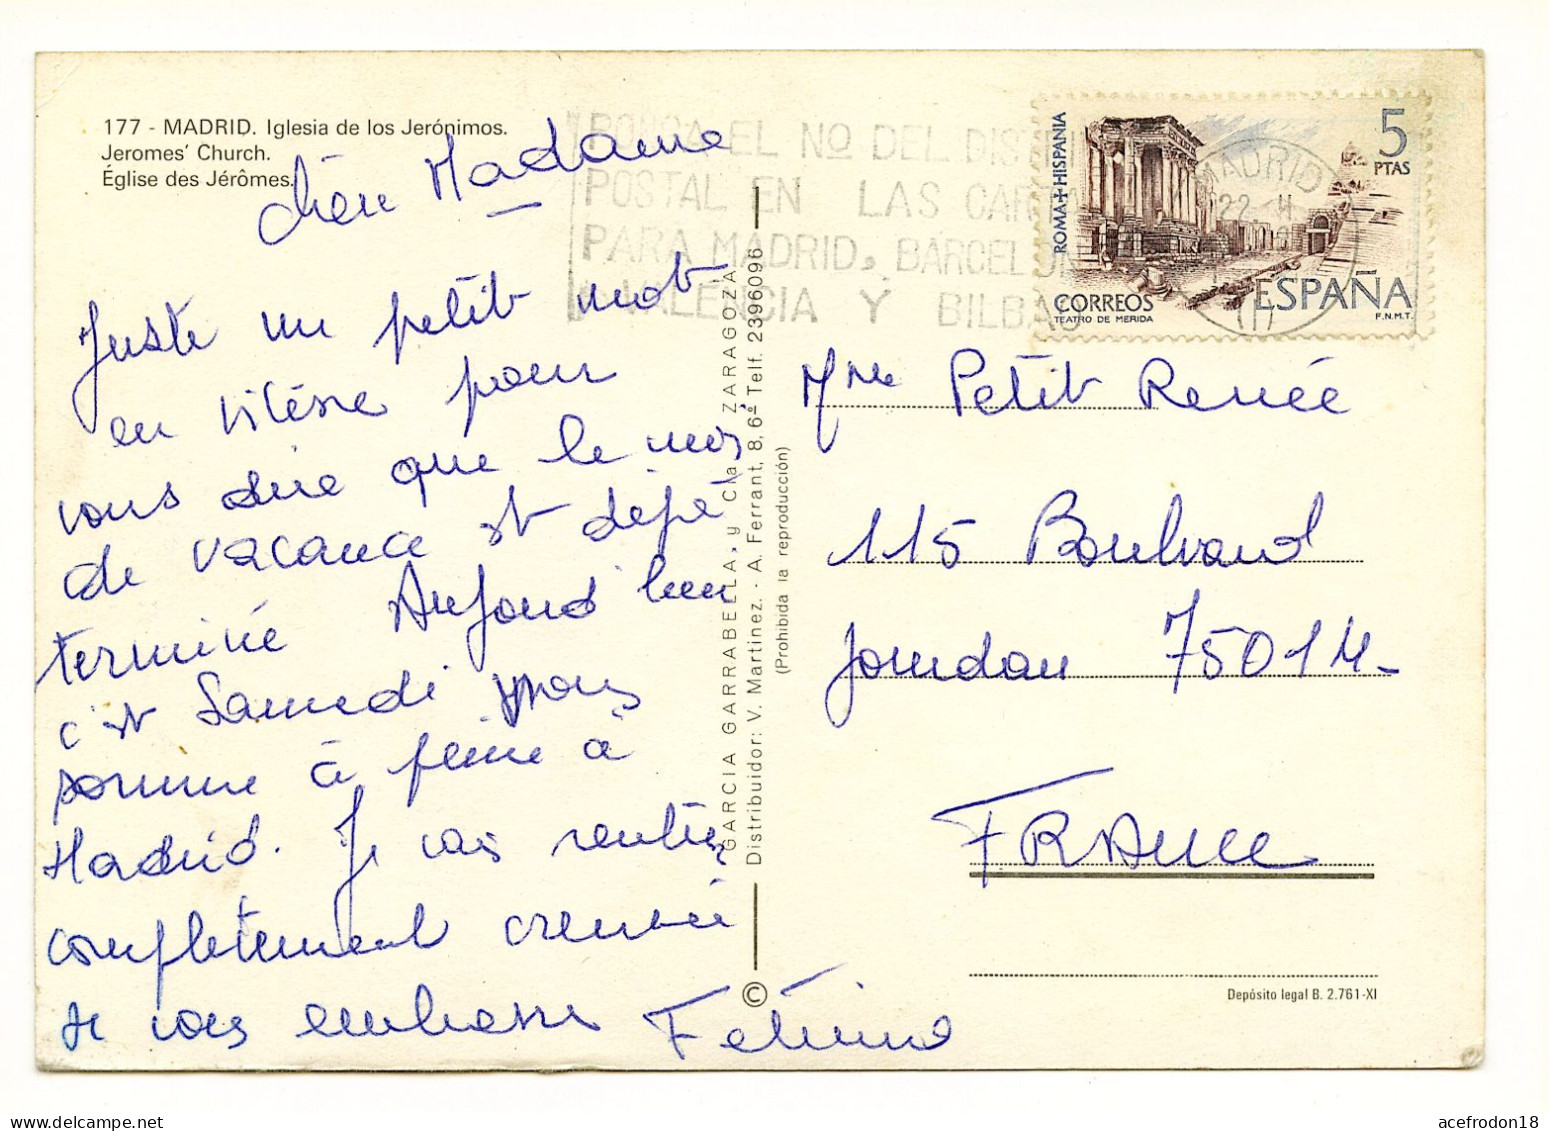 177 - MADRID. Iglesia de los Jerónimos.
Jeromes' Church.
Église des Jérômes.
chère Madame
Juste un petit mot
en vitesse pour
vous dire que le mois
de vacance est dejé
terminé Aujourd'hui
c'est Samedi nous
somme à peine à
Madrid. Je vais rentrer
completement crevée
Je vous embrasse
GARCIA GARRABELLA, y Cía ZARAGOZA
Distribuidor: V. Martinez. - A. Ferrant, 8, 6º Telf. 2396096
(Prohibida la reproducción)
©
PONGA EL Nº DEL DISTRI
POSTAL EN LAS CARTA
PARA MADRID, BARCELON
VALENCIA Y BILBAO
ROMA + HISPANIA
5
PTAS
MADRID
22
CORREOS
TEATRO DE MERIDA
ESPAÑA
F.N.M.T.
Mme Petit Renée
115 Boulvard
Jourdan 75014-
FRANCE
Depósito legal B. 2.761-XI
acefrodon18